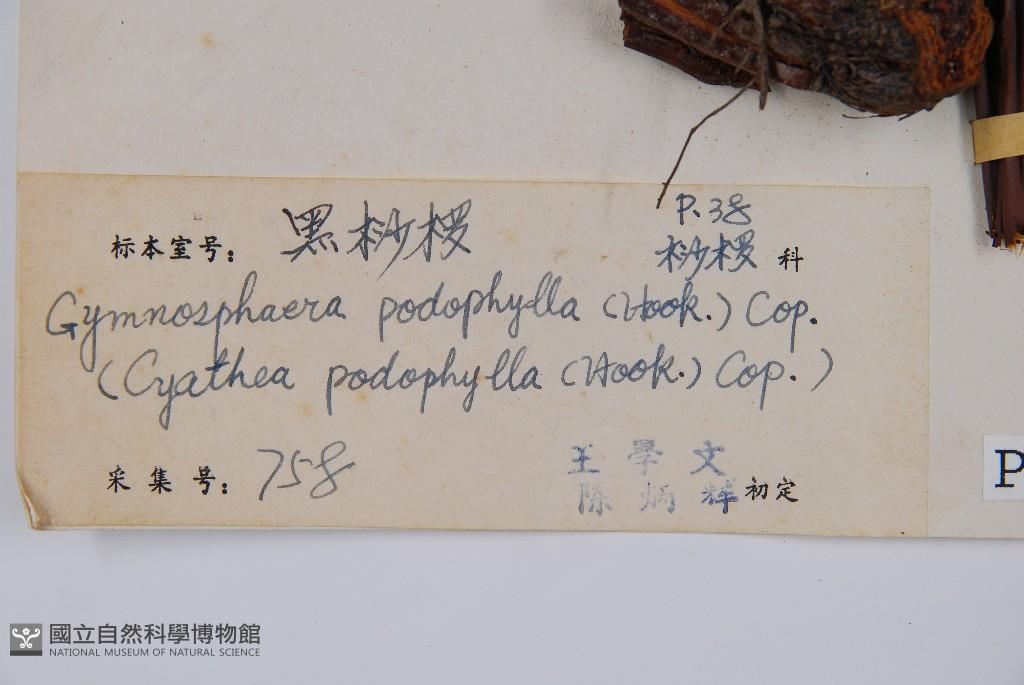 P.38
标本室号： 黑桫椤 桫椤 科
Gymnosphaera podophylla (Hook.) Cop.
(Cyathea podophylla (Hook.) Cop.)
王學文
采集号： 758 陈炳辉 初定
P
國立自然科學博物館
NATIONAL MUSEUM OF NATURAL SCIENCE